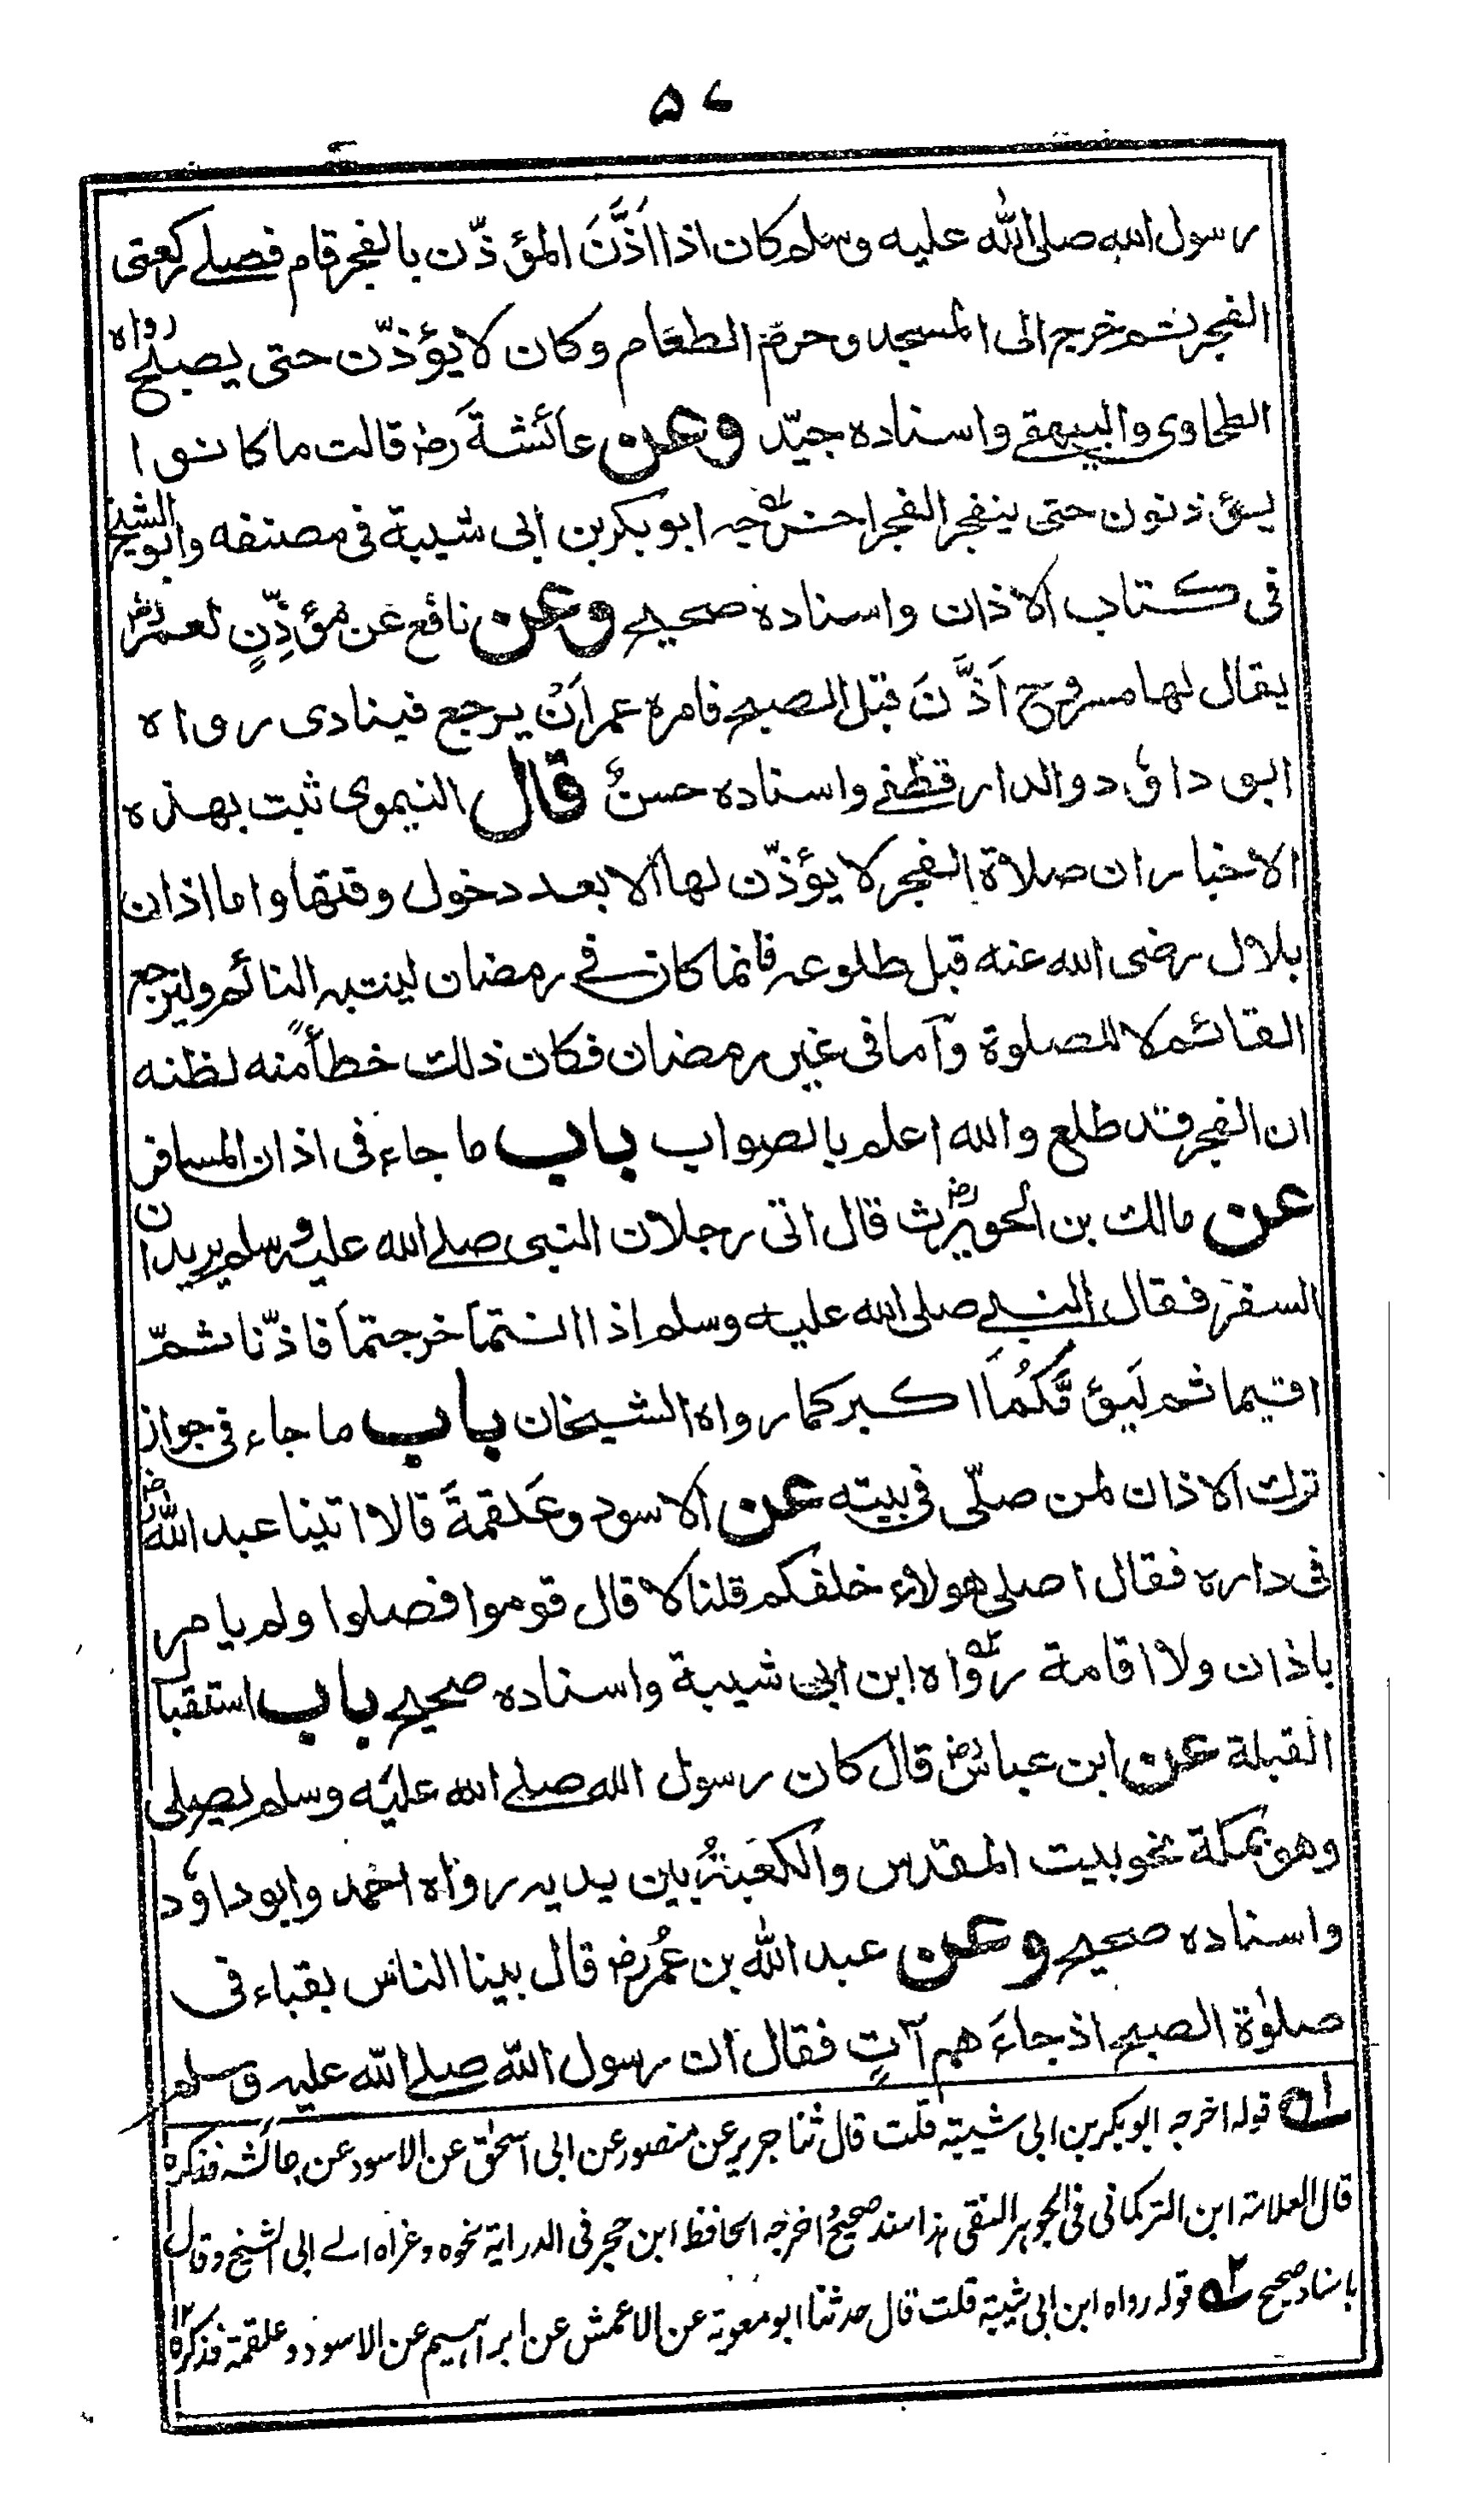 ۵۷
رسول الله صلى الله عليه وسلم كان اذا اَذَّنَ المؤذّن بالفجر قام فصلے ركعتى
الفجر ثم خرج الى المسجد وحرّم الطعام وكان لا يؤذّن حتى يصبح رواه
الطحاوى والبيهقے واسناده جيّد وعن عائشةَ رض قالت ما كانوا
يؤذنون حتى ينفجر الفجر اخرجه ابوبكر بن ابى شيبة فى مصنفه وابو الشيخ
فى كتاب الاذان واسناده صحيح وعن نافع عن مؤذِّنٍ لعمر رض
يقال لها مسروح اَذَّنَ قبل الصبح فامره عمر اَنْ يرجع فينادى رواه
ابو داؤد والدارقطنے واسناده حسنٌ قال النيموى ثبت بهذه
الاخبار ان صلاة الفجر لا يؤذّن لها الا بعد دخول وقتها واما اذان
بلال رضى الله عنه قبل طلوعه فانما كان فے رمضان لينتبه النائم وليرجع
القائم لا للصلوة وآما فى غير رمضان فكان ذلك خطأً منه لظنه
ان الفجر قد طلع والله اعلم بالصواب باب ما جاء فى اذان المسافر
عن مالك بن الحويرث رض قال اتى رجلان النبى صلے الله عليه وسلم يريدان
السفر فقال النبے صلى الله عليه وسلم اذا انتما خرجتما فاذّنا ثمّ
اقيما ثم ليؤمَّكُمَا اكبركما رواه الشيخان باب ما جاء فى جواز
ترك الاذان لمن صلّى فى بيته عن الاسود وعَلقمةَ قالا اتينا عبد الله رض
فى داره فقال اصلى هولاء خلفكم قلنا لا قال قوموا فصلوا ولم يامر
باذان ولا اقامة رواه ابن ابى شيبة واسناده صحيح باب استقبال
القبلة عن ابن عباس رض قال كان رسول الله صلے الله عليه وسلم يصلى
وهو بمكة نحو بيت المقدس والكعبةُ بين يديه رواه احمد وابو داؤد
واسناده صحيح وعن عبد الله بن عُمر رض قال بينا الناس بقباء فى
صلوٰة الصبح اذ جاءَ هم آتٍ فقال ان رسول الله صلے الله عليه وسلم
ے۱ قوله اخرجه ابوبكر بن ابى شيبة قلت قال ثنا جرير عن منصور عن ابى اسحٰق عن الاسود عن عائشه فذكره
قال العلامة ابن التركمانى فى الجوهر النقى هذا سند صحيحٌ اخرجه الحافظ ابن حجر فى الدراية نحوه وعزاه الے ابى الشيخ وقال
باسناد صحيح ے۲ قوله رواه ابن ابى شيبة قلت قال حدثنا ابو معوية عن الاعمش عن ابراهيم عن الاسود وعلقمة فذكره ۱۲